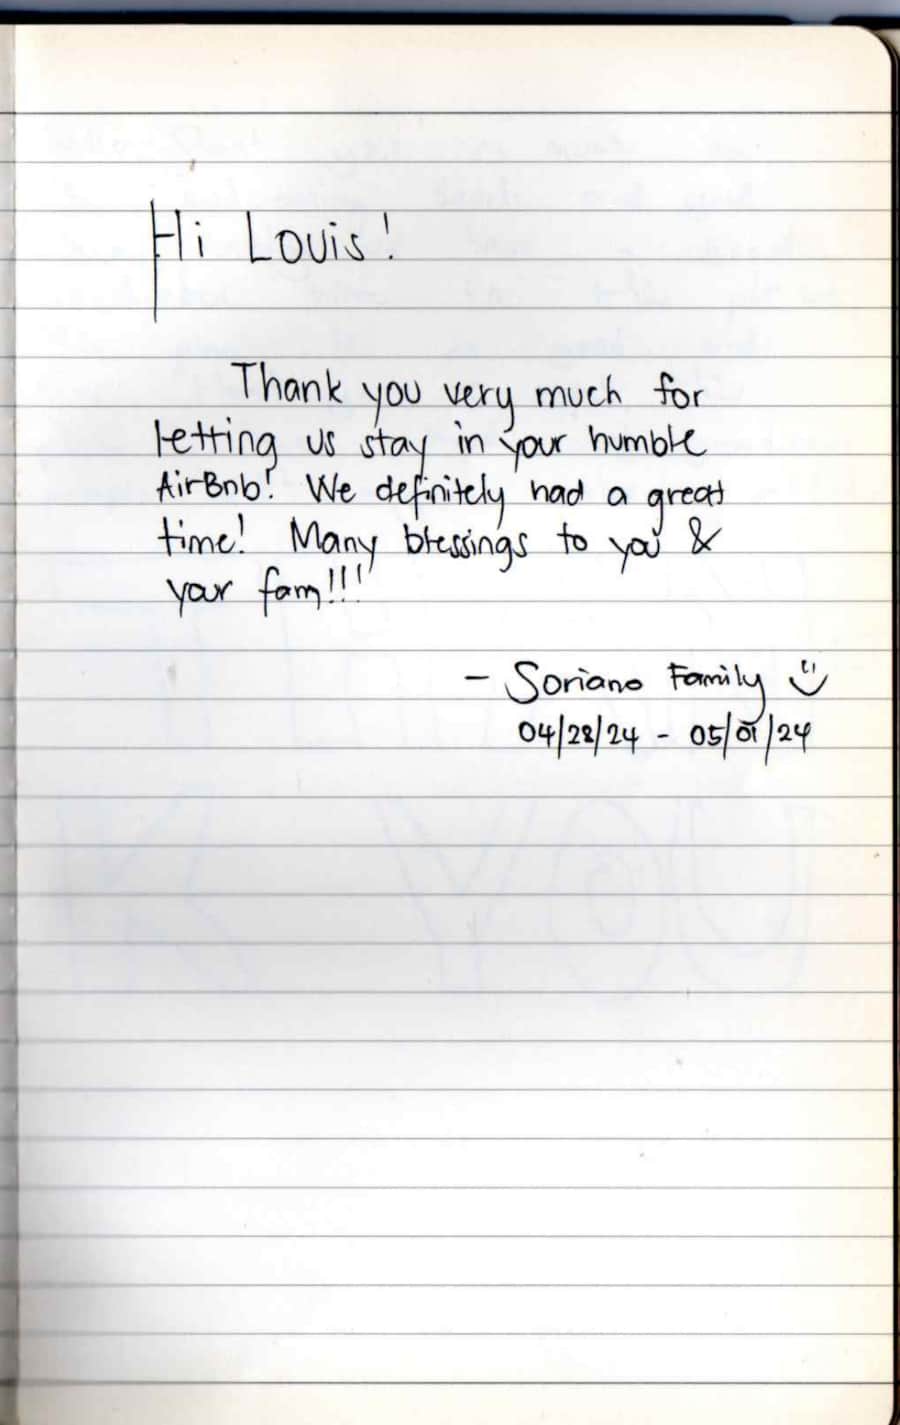 Hi Louis!
Thank you very much for
letting us stay in your humble
AirBnb! We definitely had a great
time! Many blessings to you &
your fam!!!
- Soriano Family
04/28/24 - 05/01/24